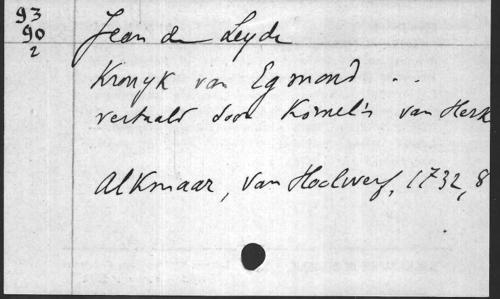 93
90
2
Jean de Leyde
Kronyk van Egmond ..
vertaald door Kornelis van Herk
Alkmaar, van Hoolwerf, 1732, 8